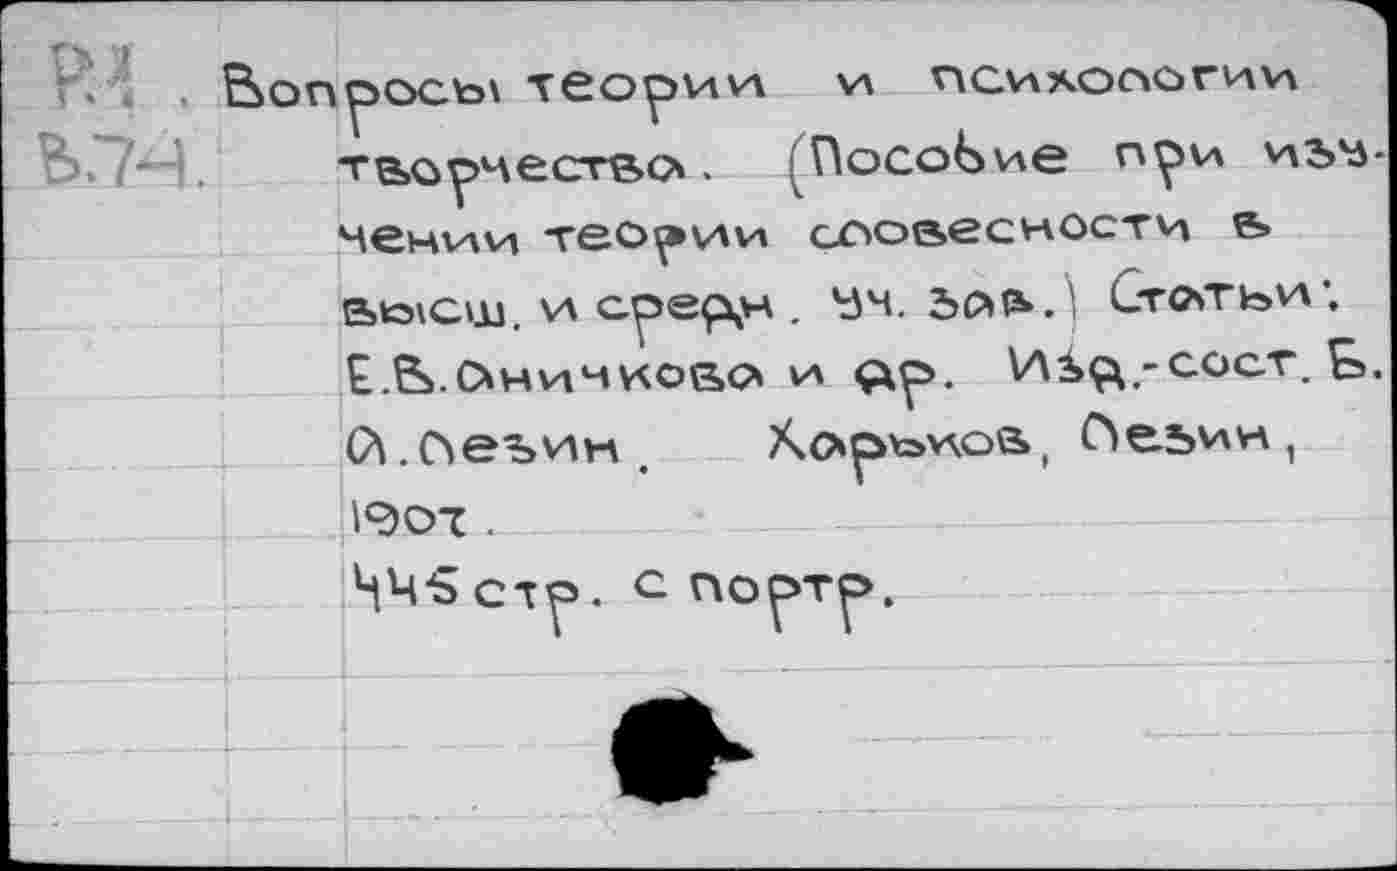 Р.1. Вопросы теории и психологии
В.74. творчества. (Пособие при изу-
чении теории словесности в
высш. и средн. уч. зав.) Статьи:
Е.В.Аничкова и др. Изд.-сост. Б.
А.Лезин. Харьков, Лезин,
1907.
445 стр. с портр.